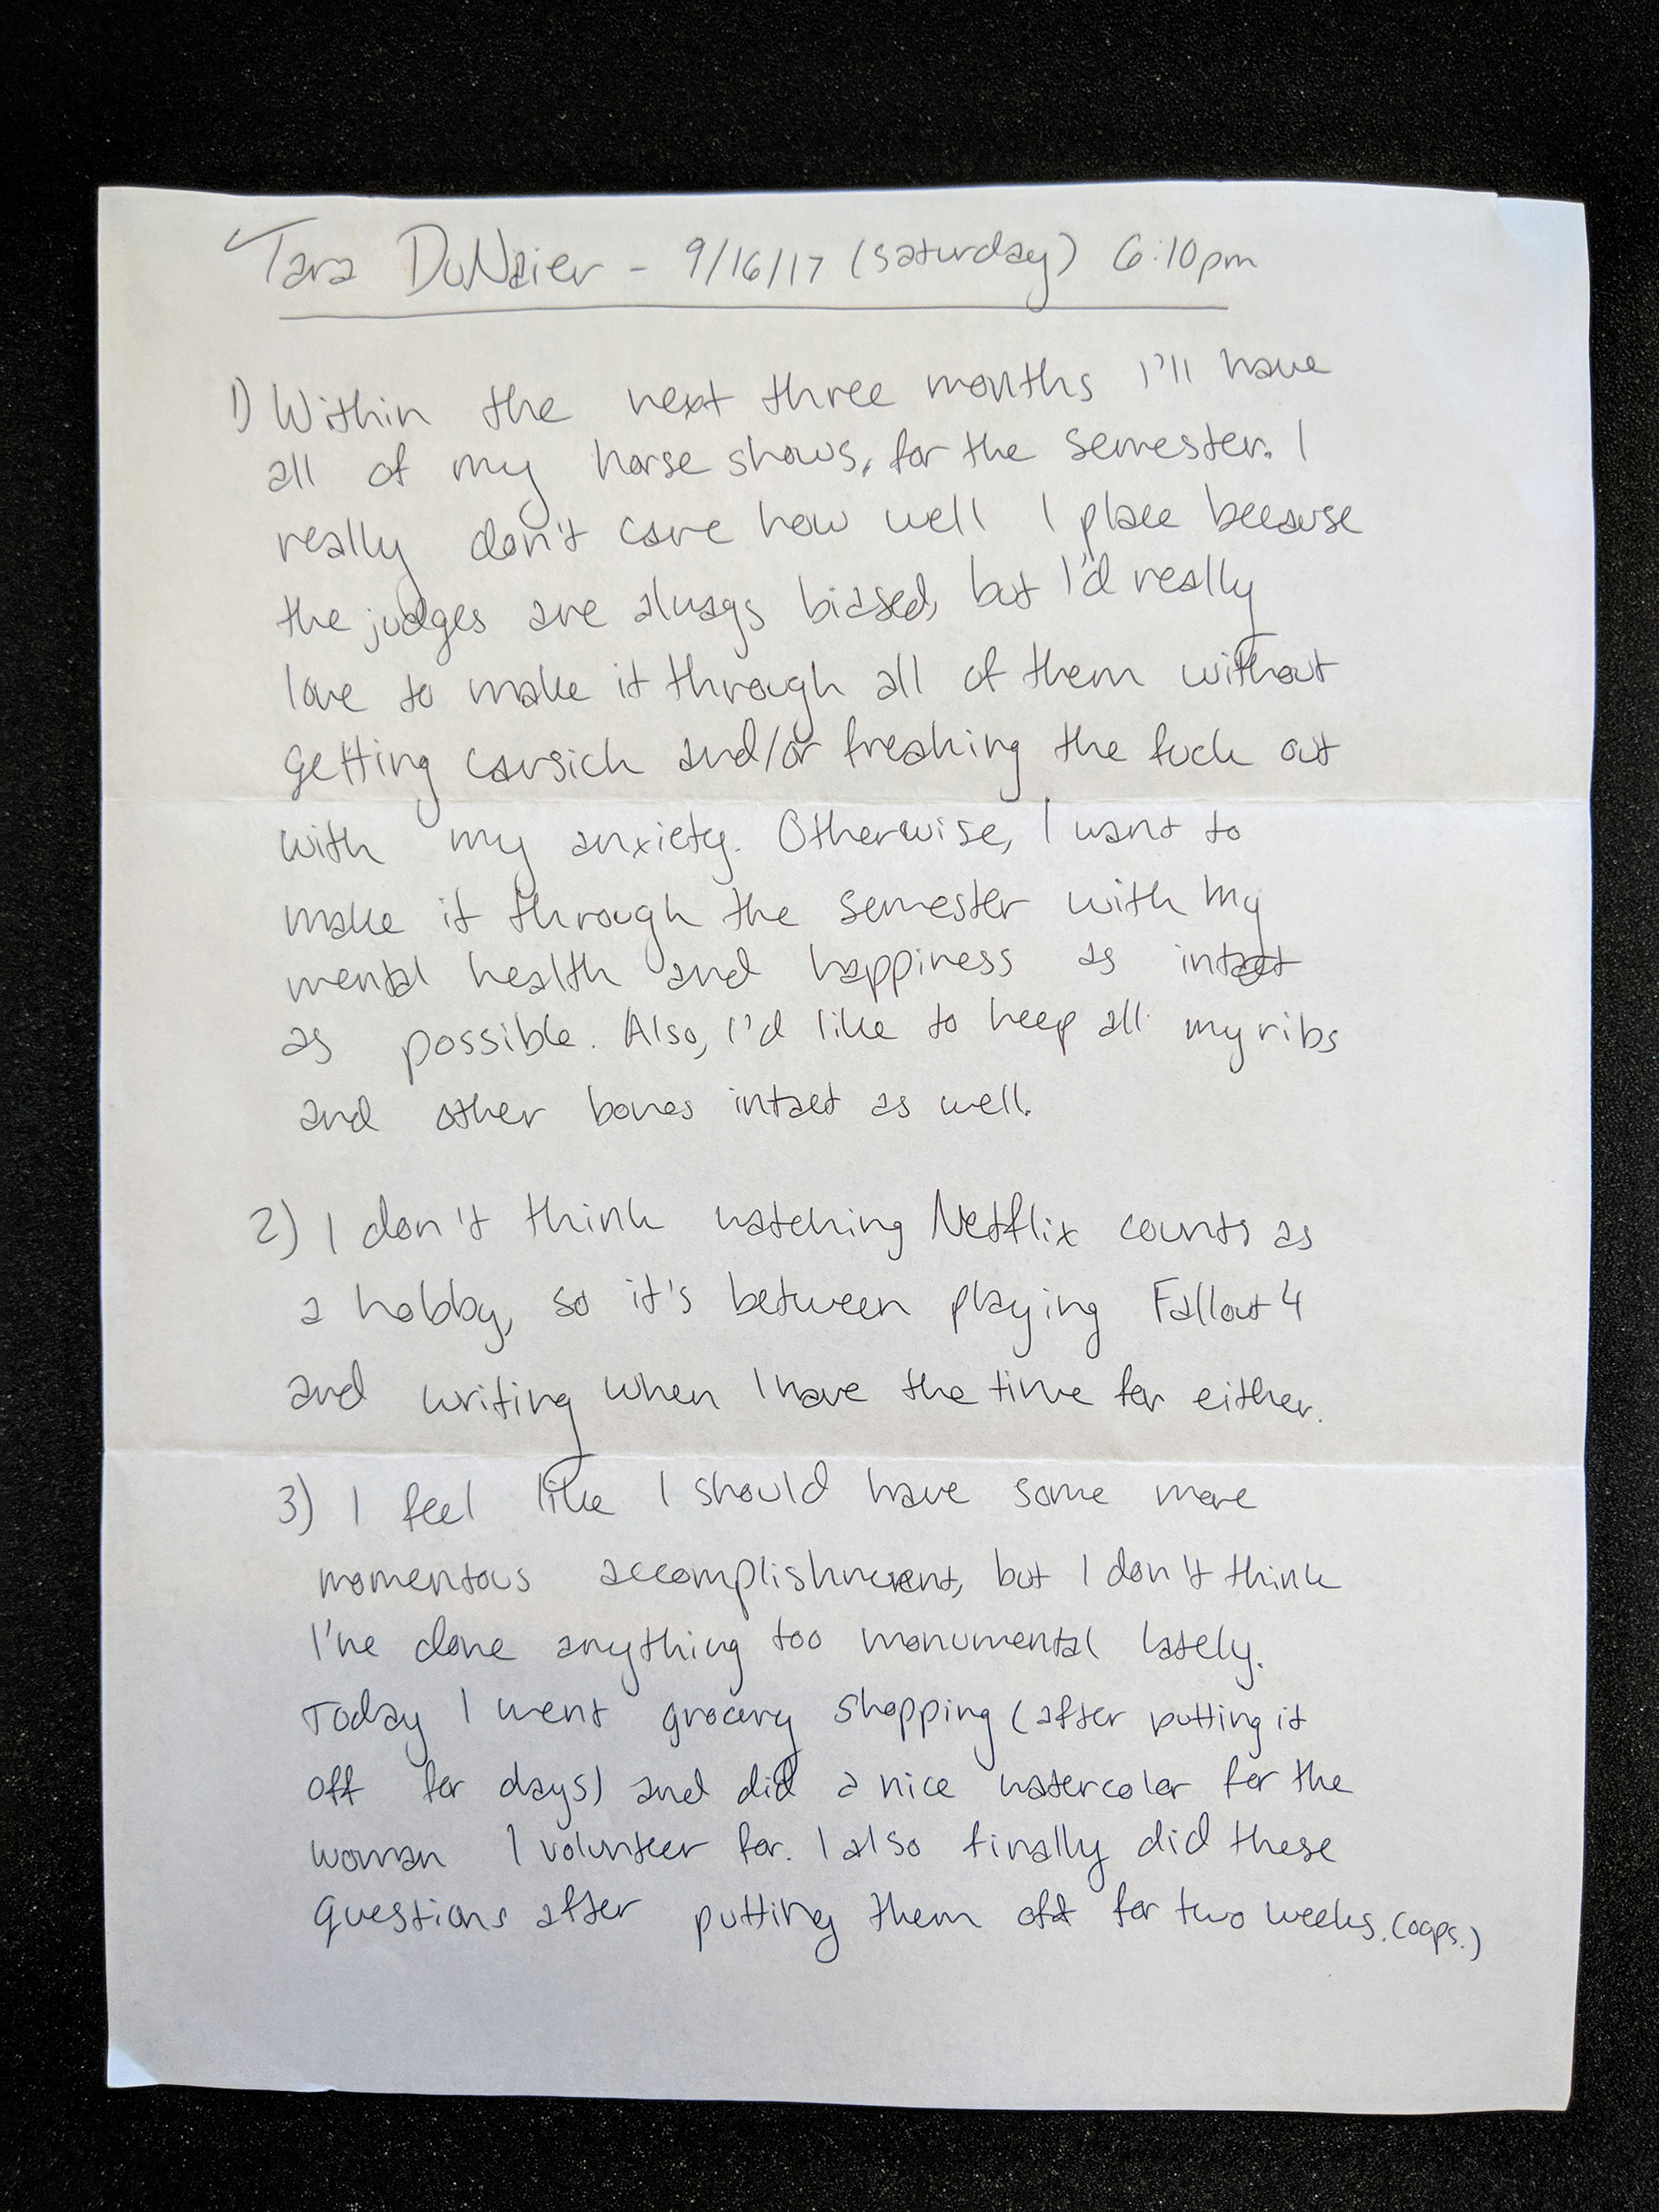 Tara DuNaier - 9/16/17 (saturday) 6:10pm
1) Within the next three months I'll have
all of my horse shows, for the semester. I
really don't care how well I place because
the judges are always biased, but I'd really
love to make it through all of them without
getting carsick and/or freaking the fuck out
with my anxiety. Otherwise, I want to
make it through the semester with my
mental health and happiness as intact
as possible. Also, I'd like to keep all my ribs
and other bones intact as well.
2) I don't think watching Netflix counts as
a hobby, so it's between playing Fallout 4
and writing when I have the time for either.
3) I feel like I should have some more
momentous accomplishment, but I don't think
I've done anything too monumental lately.
Today I went grocery shopping (after putting it
off for days) and did a nice watercolor for the
woman I volunteer for. I also finally did these
questions after putting them off for two weeks. (oops.)